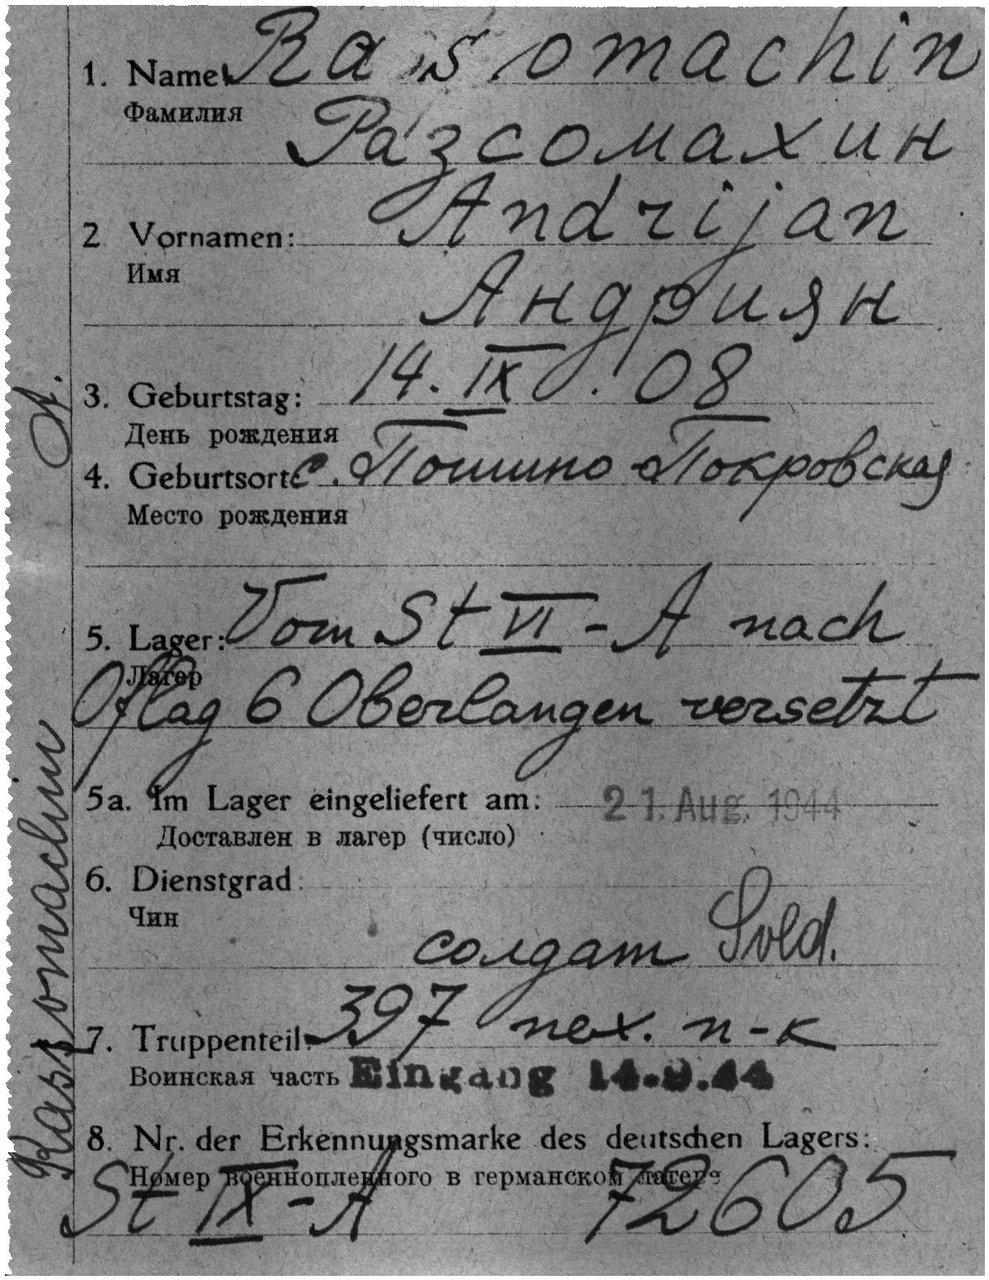 1. Name: Rassomachin
Фамилия
Разсомахин
2 Vornamen: Andrijan
Имя
Андриян
3. Geburtstag: 14. IX. 08
День рождения
4. Geburtsort: с. Пошино-Покровская
Место рождения
5. Lager: Vom St VI-A nach
Лагер
Oflag 6 Oberlangen versetzt
5a. Im Lager eingeliefert am: 21. Aug. 1944
Доставлен в лагер (число)
6. Dienstgrad:
Чин
солдат Sold.
7. Truppenteil: 397 пех. п-к
Воинская часть Eingang 14.9.44
8. Nr. der Erkennungsmarke des deutschen Lagers:
Номер военнопленного в германском лагере
St IX-A 72605
Rassomachin A.